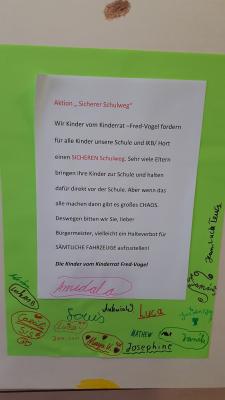 Aktion „ Sicherer Schulweg"
Wir Kinder vom Kinderrat –Fred-Vogel fordern
für alle Kinder unsere Schule und IKB/ Hort
einen SICHEREN Schulweg. Sehr viele Eltern
bringen ihre Kinder zur Schule und halten
dafür direkt vor der Schule. Aber wenn das
alle machen dann gibt es großes CHAOS.
Deswegen bitten wir Sie, lieber
Bürgermeister, vielleicht ein Halteverbot für
SÄMTLICHE FAHRZEUGE aufzustellen!
Die Kinder vom Kinderrat Fred-Vogel
Amidala
Luca
MATHEW
Josephine